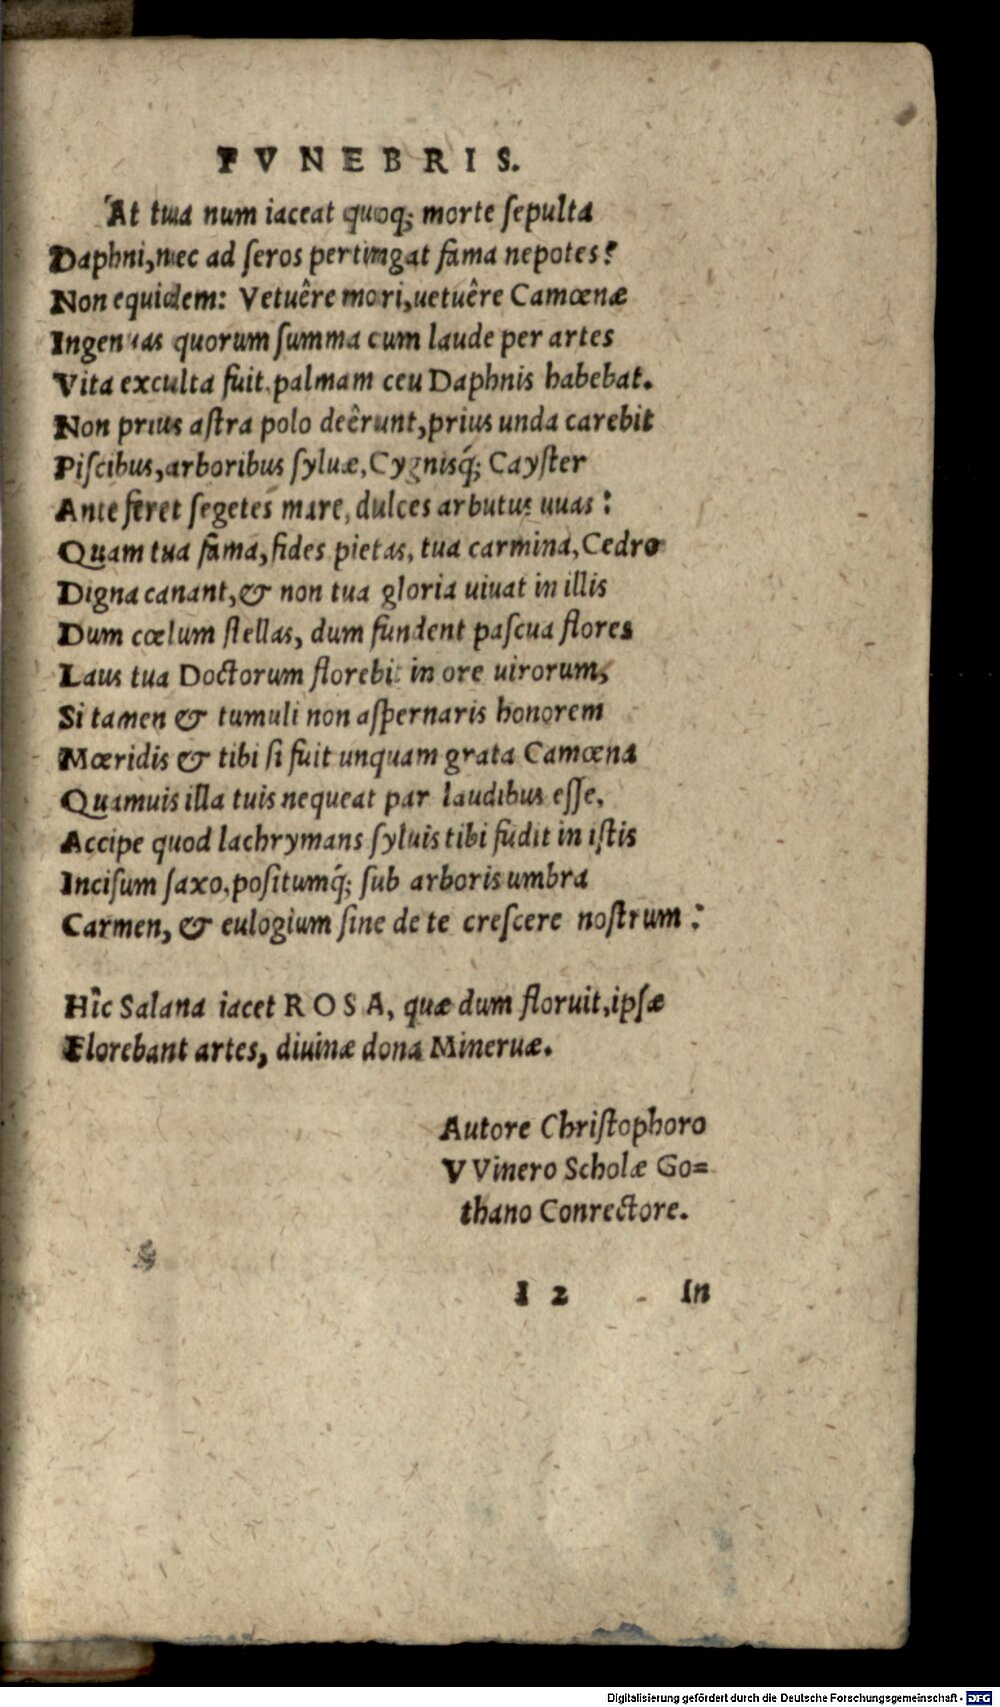 FVNEBRIS.
At tua num iaceat quoq; morte ſepulta
Daphni, nec ad ſeros pertingat fama nepotes?
Non equidem: Vetuêre mori, uetuêre Camœnæ
Ingenuas quorum ſumma cum laude per artes
Vita exculta fuit, palmam ceu Daphnis habebat.
Non prius aſtra polo deêrunt, prius unda carebit
Piſcibus, arboribus ſyluæ, Cygnisq́; Cayſter
Ante feret ſegetes mare, dulces arbutus uuas:
Quam tua fama, fides pietas, tua carmina, Cedro
Digna canant, & non tua gloria uiuat in illis
Dum cœlum ſtellas, dum fundent paſcua flores
Laus tua Doctorum florebit in ore uirorum,
Si tamen & tumuli non aſpernaris honorem
Mœridis & tibi ſi fuit unquam grata Camœna
Quamuis illa tuis nequeat par laudibus eſſe,
Accipe quod lachrymans ſyluis tibi fudit in iſtis
Inciſum ſaxo, poſitumq́; ſub arboris umbra
Carmen, & eulogium ſine de te creſcere noſtrum:
Hîc Salana iacet ROSA, quæ dum floruit, ipſæ
Florebant artes, diuinæ dona Mineruæ.
Autore Chriſtophoro
VVinero Scholæ Go=
thano Conrectore.
I 2 In
Digitalisierung gefördert durch die Deutsche Forschungsgemeinschaft - DFG